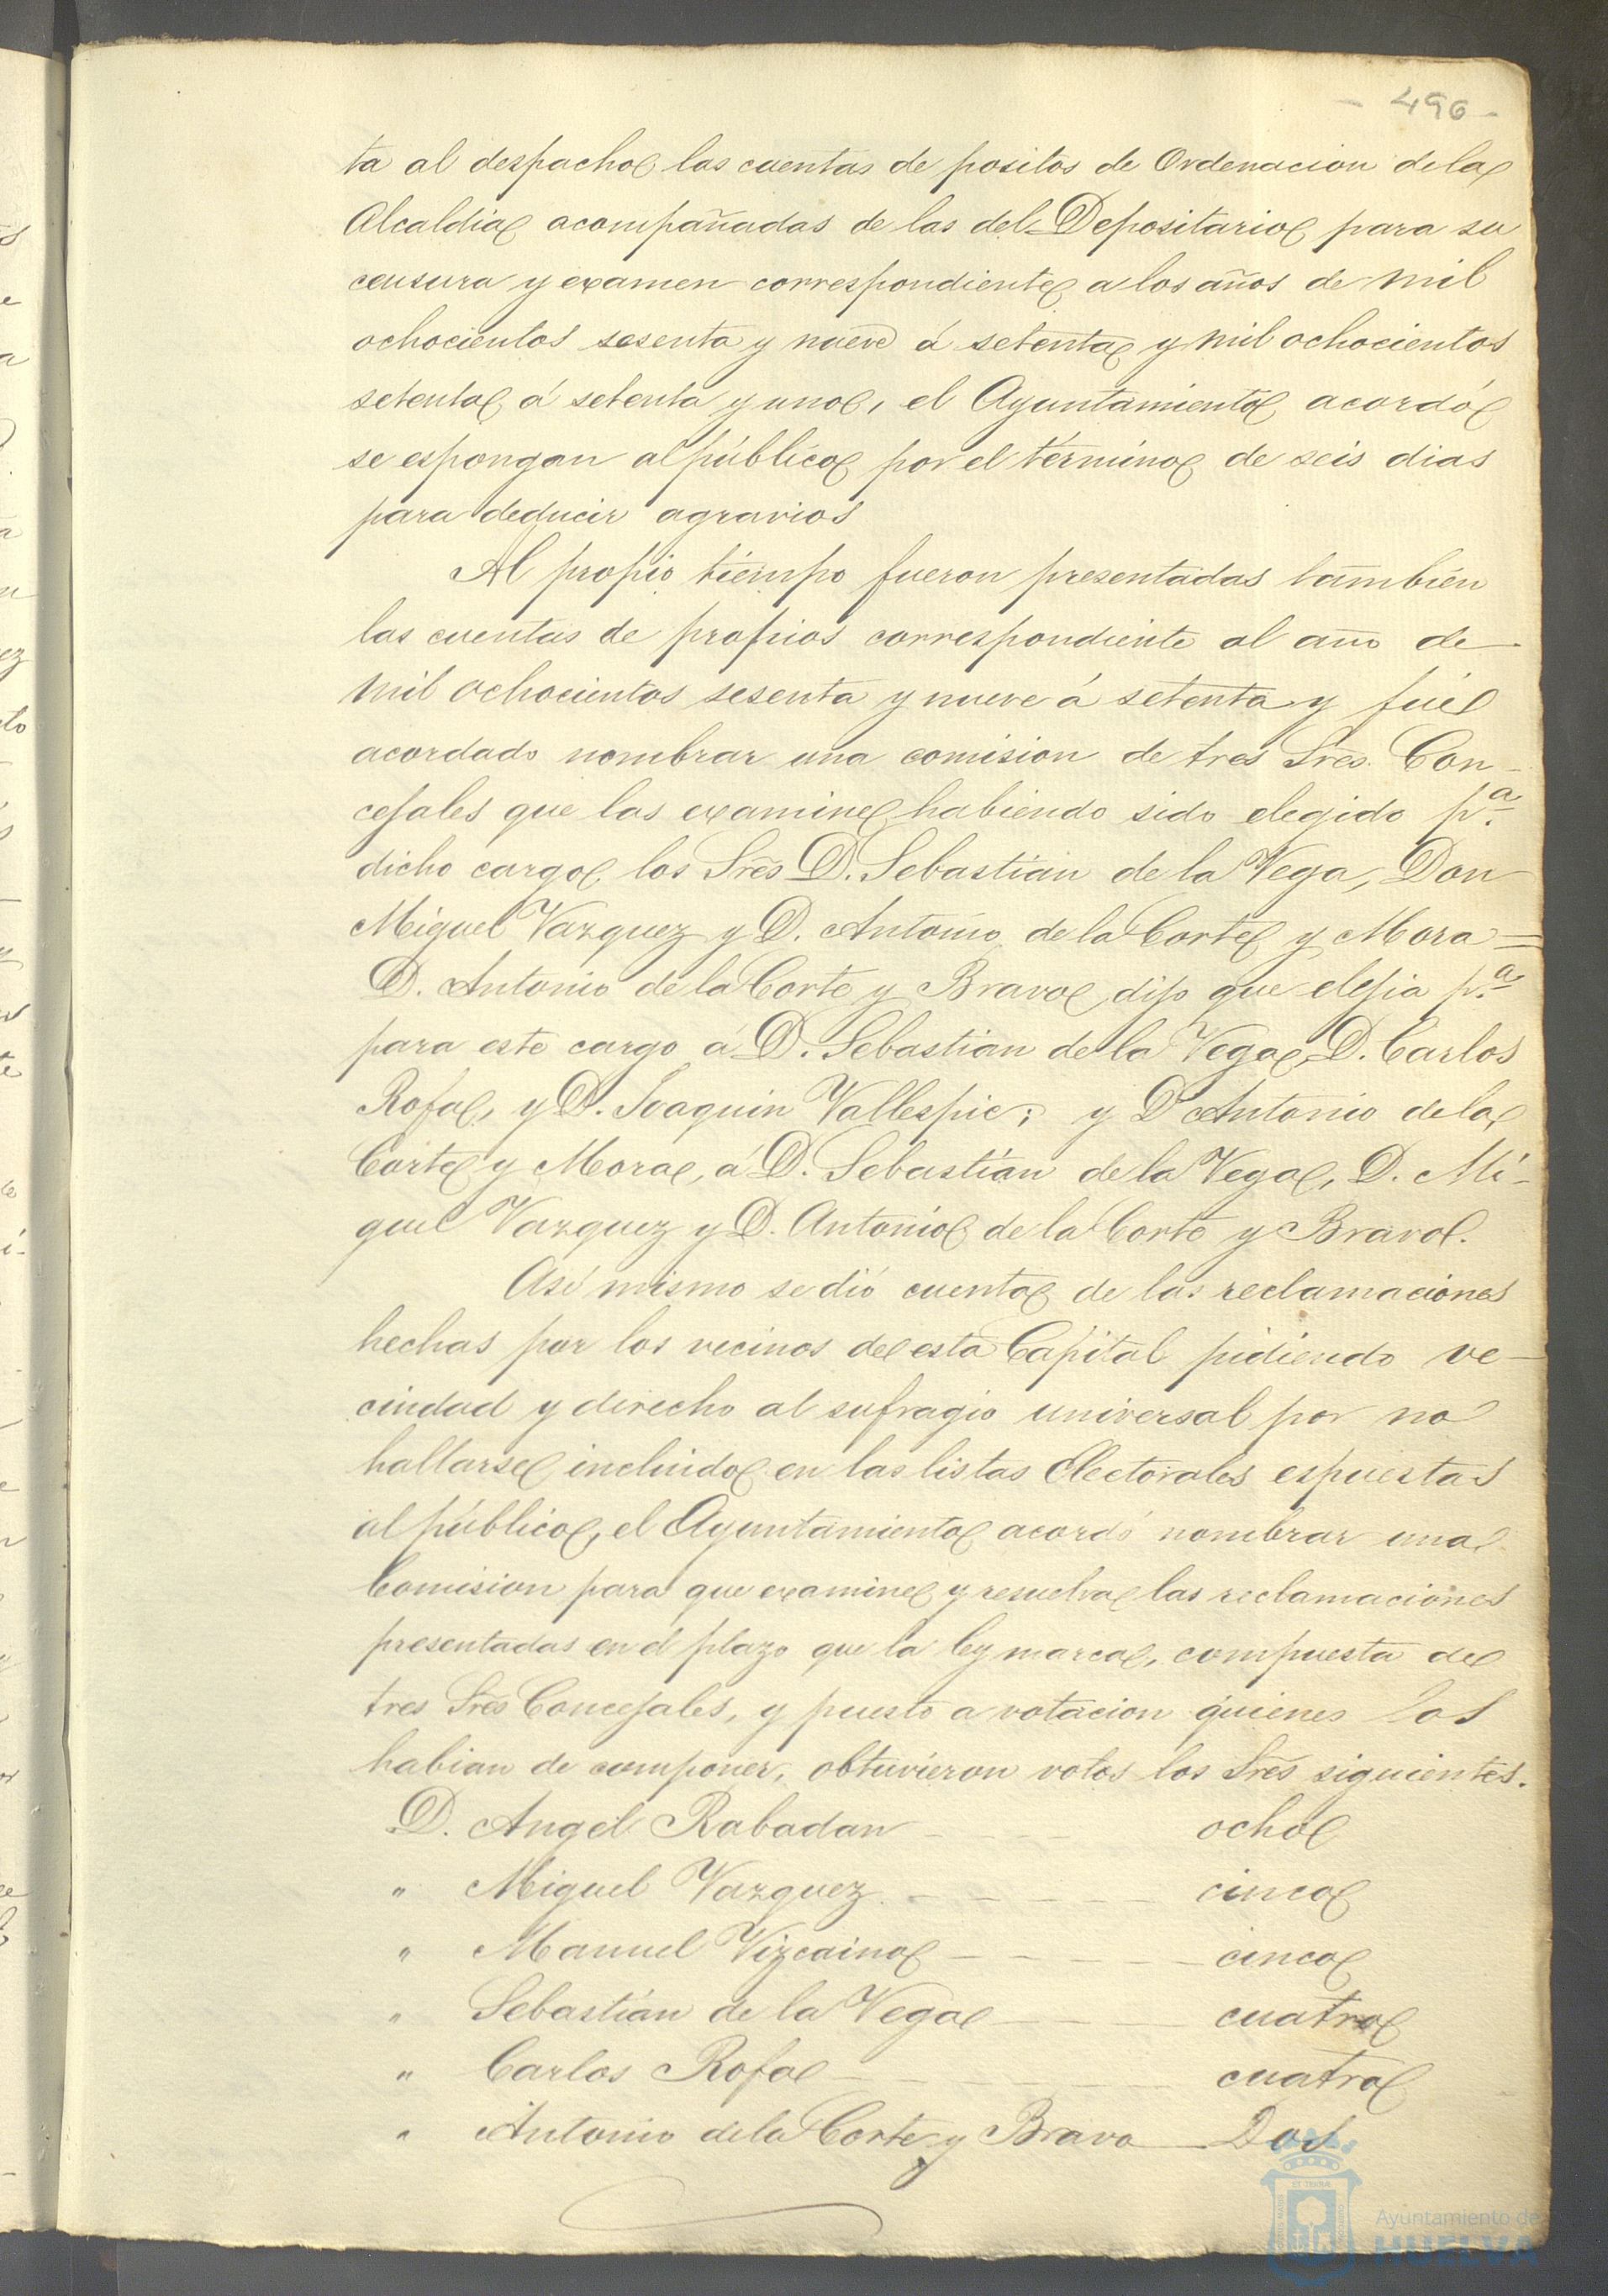 - 496 -
ta al despacho las cuentas de positos de Ordenacion de la
Alcaldia acompañadas de las del Depositario para su
censura y examen correspondiente a los años de mil
ochocientos sesenta y nueve á setenta y mil ochocientos
setenta á setenta y uno, el Ayuntamiento acordó
se espongan al público por el término de seis dias
para deducir agravios
Al propio tiempo fueron presentadas tambien
las cuentas de propios correspondiente al año de
mil ochocientos sesenta y nueve á setenta y fué
acordado nombrar una comision de tres Sres. Con-
cejales que las examine habiendo sido elegido p.ª
dicho cargo los Sres D. Sebastian de la Vega, Don
Miguel Vazquez y D. Antonio de la Corte y Mora =
D. Antonio de la Corte y Bravo dijo que elejia p.ª
para este cargo a D. Sebastian de la Vega, D. Carlos
Rofa, y D. Joaquin Vallespic; y D Antonio de la
Corte y Mora, á D. Sebastian de la Vega, D. Mi-
guel Vazquez y D. Antonio de la Corte y Bravo.
Asi mismo se dió cuenta de las reclamaciones
hechas por los vecinos de esta Capital pidiendo ve-
cindad y derecho al sufragio universal por no
hallarse incluido en las listas Electorales espuestas
al público, el Ayuntamiento acordó nombrar una
Comision para que examine y resuelva las reclamaciones
presentadas en el plazo que la ley marca, compuesta de
tres Sres Concejales, y puesto a votacion quienes los
habian de componer, obtuvieron votos los Sres siguientes.
D. Angel Rabadan - - - - ocho
" Miguel Vazquez - - - - - cinco
" Manuel Vizcaino - - - - - cinco
" Sebastian de la Vega - - - cuatro
" Carlos Rofa - - - - - cuatro
" Antonio de la Corte y Bravo - Dos
Ayuntamiento de
HUELVA